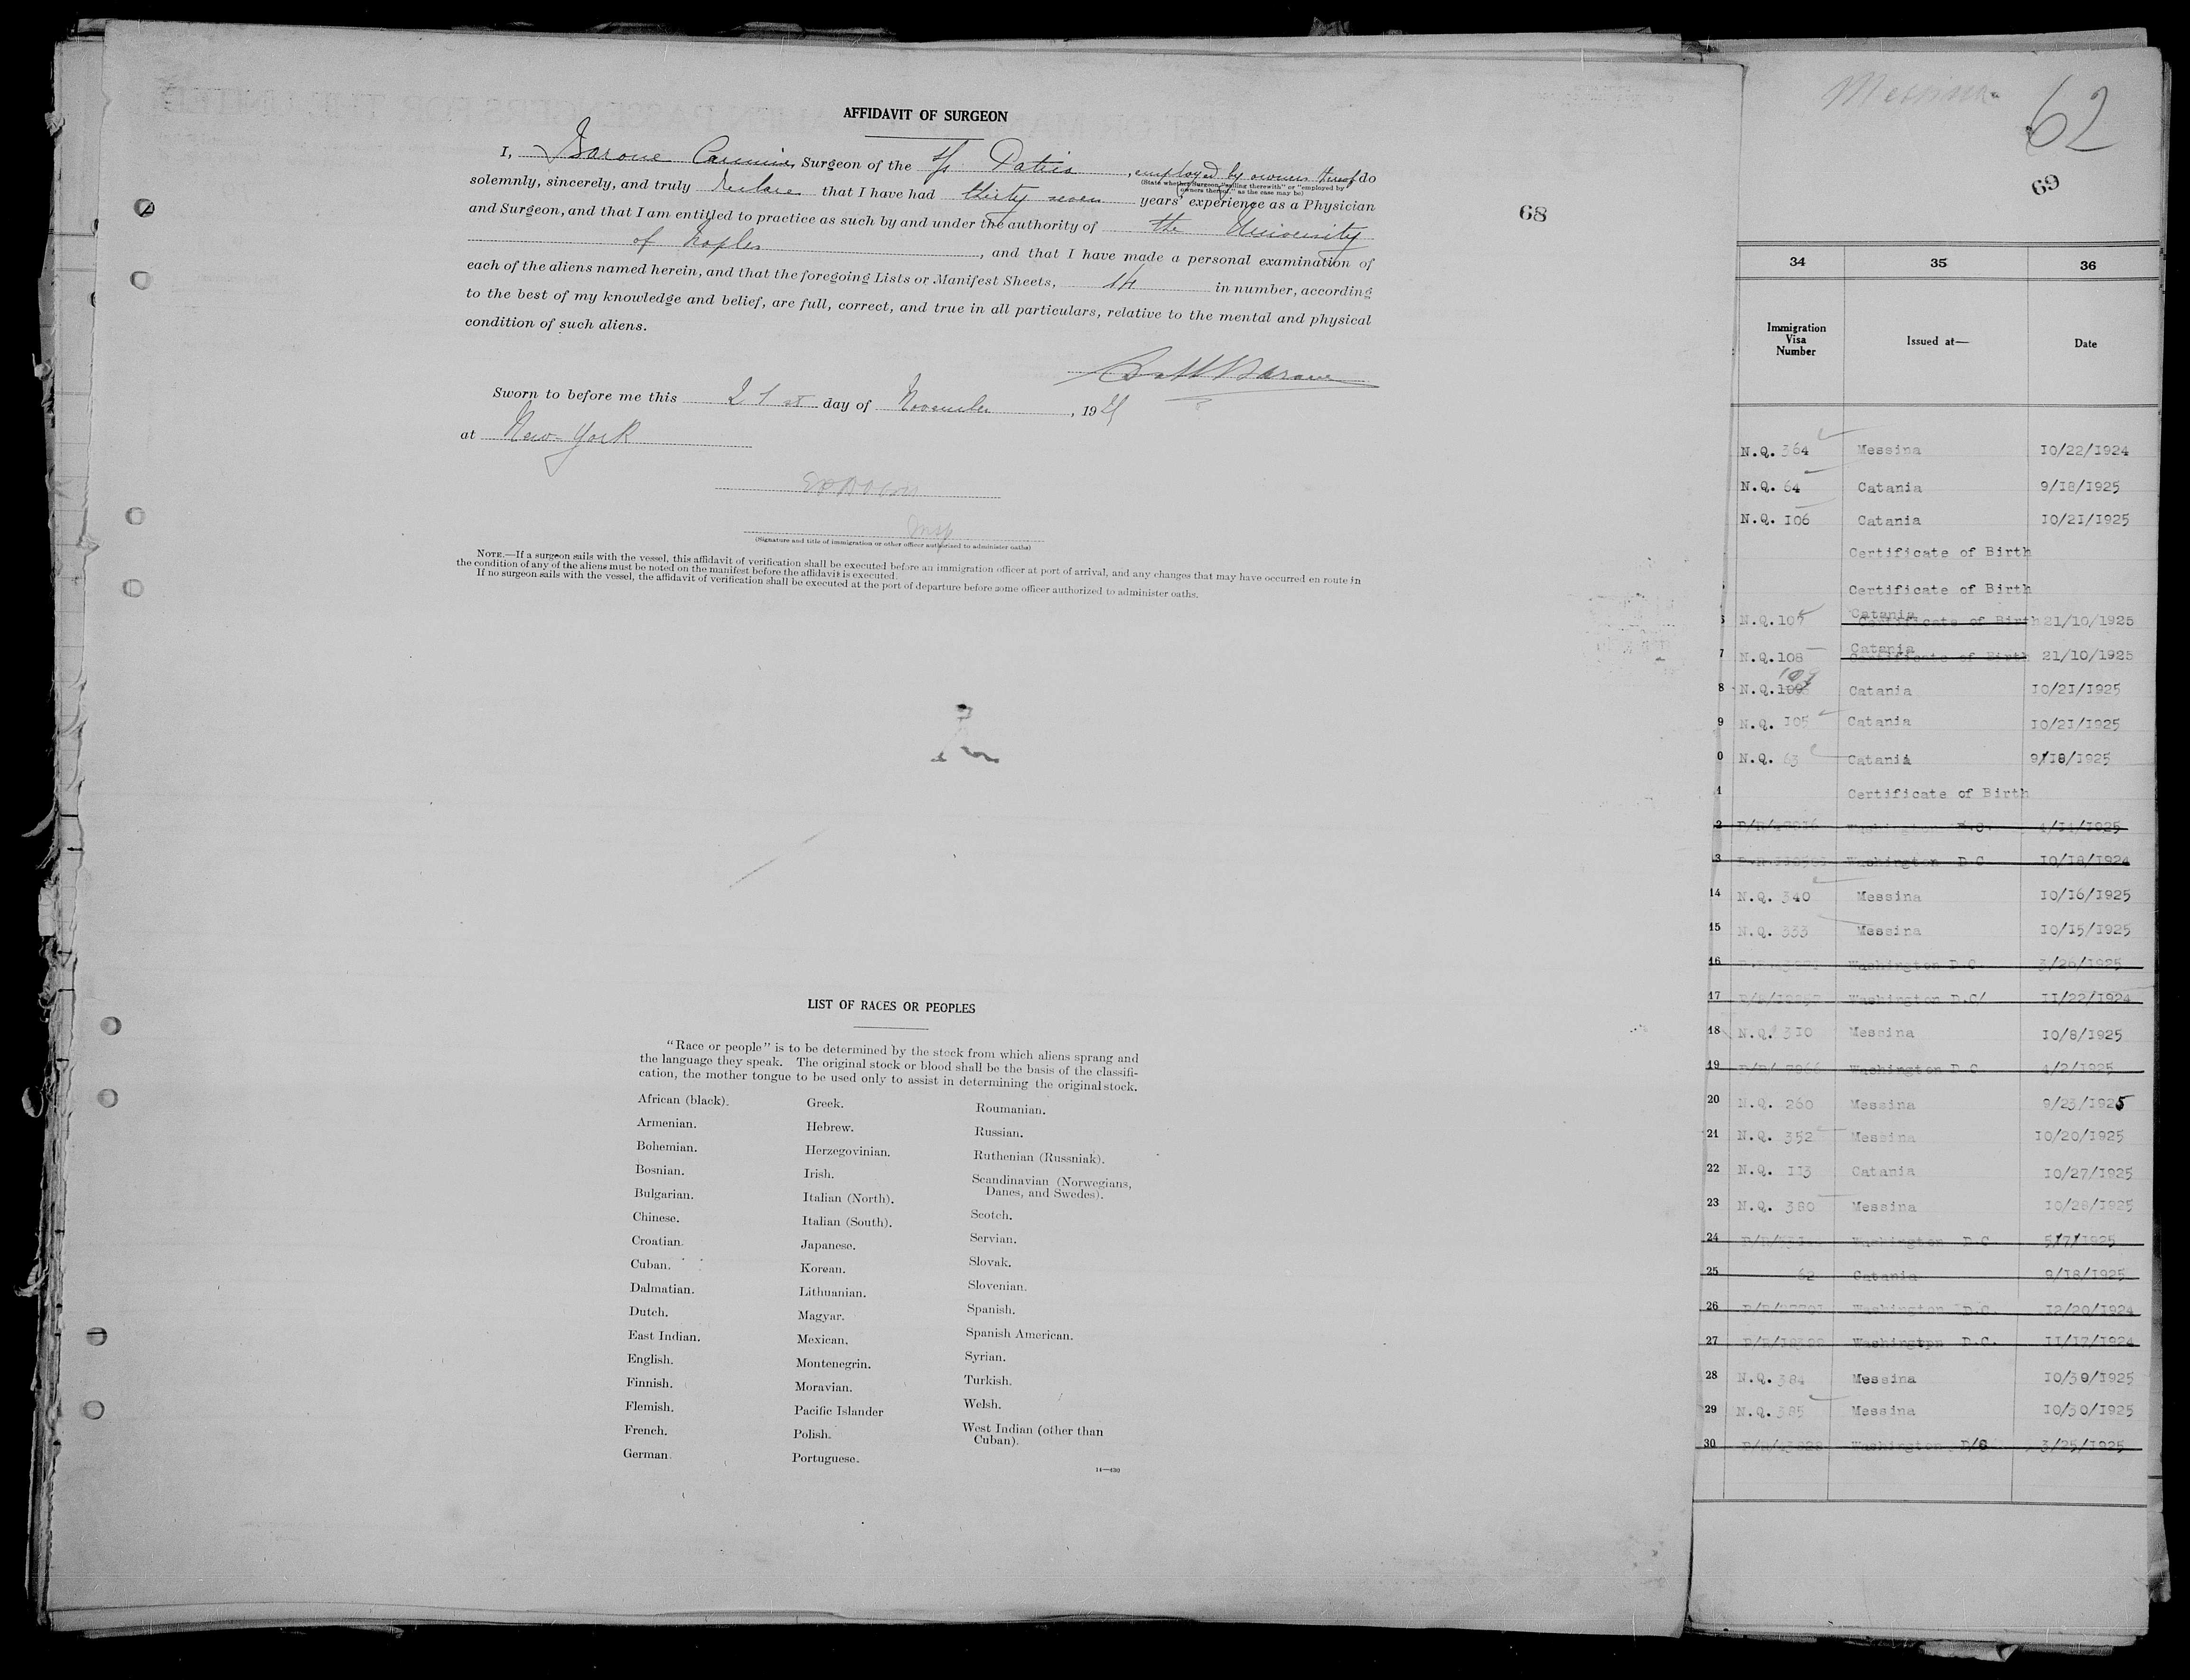 AFFIDAVIT OF SURGEON
I, Barone Carmine, Surgeon of the s/s Patria, employed by owners thereof do
(State whether Surgeon "sailing therewith" or "employed by
owners thereof," as the case may be)
solemnly, sincerely, and truly declare that I have had thirty seven years' experience as a Physician
and Surgeon, and that I am entitled to practice as such by and under the authority of the University
of Naples, and that I have made a personal examination of
each of the aliens named herein, and that the foregoing Lists or Manifest Sheets, 14 in number, according
to the best of my knowledge and belief, are full, correct, and true in all particulars, relative to the mental and physical
condition of such aliens.
Barone
Sworn to before me this 21st day of November, 19
at New-York
Insp
(Signature and title of immigration or other officer authorized to administer oaths)
NOTE.—If a surgeon sails with the vessel, this affidavit of verification shall be executed before an immigration officer at port of arrival, and any changes that may have occurred en route in
the condition of any of the aliens must be noted on the manifest before the affidavit is executed.
If no surgeon sails with the vessel, the affidavit of verification shall be executed at the port of departure before some officer authorized to administer oaths.
68
LIST OF RACES OR PEOPLES
"Race or people" is to be determined by the stock from which aliens sprang and
the language they speak. The original stock or blood shall be the basis of the classifi-
cation, the mother tongue to be used only to assist in determining the original stock.
African (black).
Armenian.
Bohemian.
Bosnian.
Bulgarian.
Chinese.
Croatian.
Cuban.
Dalmatian.
Dutch.
East Indian.
English.
Finnish.
Flemish.
French.
German.
Greek.
Hebrew.
Herzegovinian.
Irish.
Italian (North).
Italian (South).
Japanese.
Korean.
Lithuanian.
Magyar.
Mexican.
Montenegrin.
Moravian.
Pacific Islander
Polish.
Portuguese.
Roumanian.
Russian.
Ruthenian (Russniak).
Scandinavian (Norwegians,
Danes, and Swedes).
Scotch.
Servian.
Slovak.
Slovenian.
Spanish.
Spanish American.
Syrian.
Turkish.
Welsh.
West Indian (other than
Cuban).
14—430
Messina
62
69
34 35 36
Immigration
Visa
Number
Issued at—
Date
N.Q. 364 Messina 10/22/1924
N.Q. 64 Catania 9/18/1925
N.Q. 106 Catania 10/21/1925
Certificate of Birth
Certificate of Birth
N.Q. 107 Catania Certificate of Birth 21/10/1925
7 N.Q. 108 Catania Certificate of Birth 21/10/1925
8 N.Q. 109 Catania 10/21/1925
9 N.Q. 105 Catania 10/21/1925
0 N.Q. 63 Catania 9/18/1925
1 Certificate of Birth
2 4/11/1925
3 Washington D.C 10/18/1924
14 N.Q. 340 Messina 10/16/1925
15 N.Q. 333 Messina 10/15/1925
16 Washington D.C. 3/26/1925
17 Washington D.C/ 11/22/1924
18 N.Q. 310 Messina 10/8/1925
19 Washington D.C 4/2/1925
20 N.Q. 260 Messina 9/23/1925
21 N.Q. 352 Messina 10/20/1925
22 N.Q. 113 Catania 10/27/1925
23 N.Q. 380 Messina 10/28/1925
24 Washington D.C 5/7/1925
25 62 Catania 9/18/1925
26 Washington D.C. 12/20/1924
27 Washington D.C. 11/17/1924
28 N.Q. 384 Messina 10/30/1925
29 N.Q. 385 Messina 10/30/1925
30 Washington D/C 3/25/1925